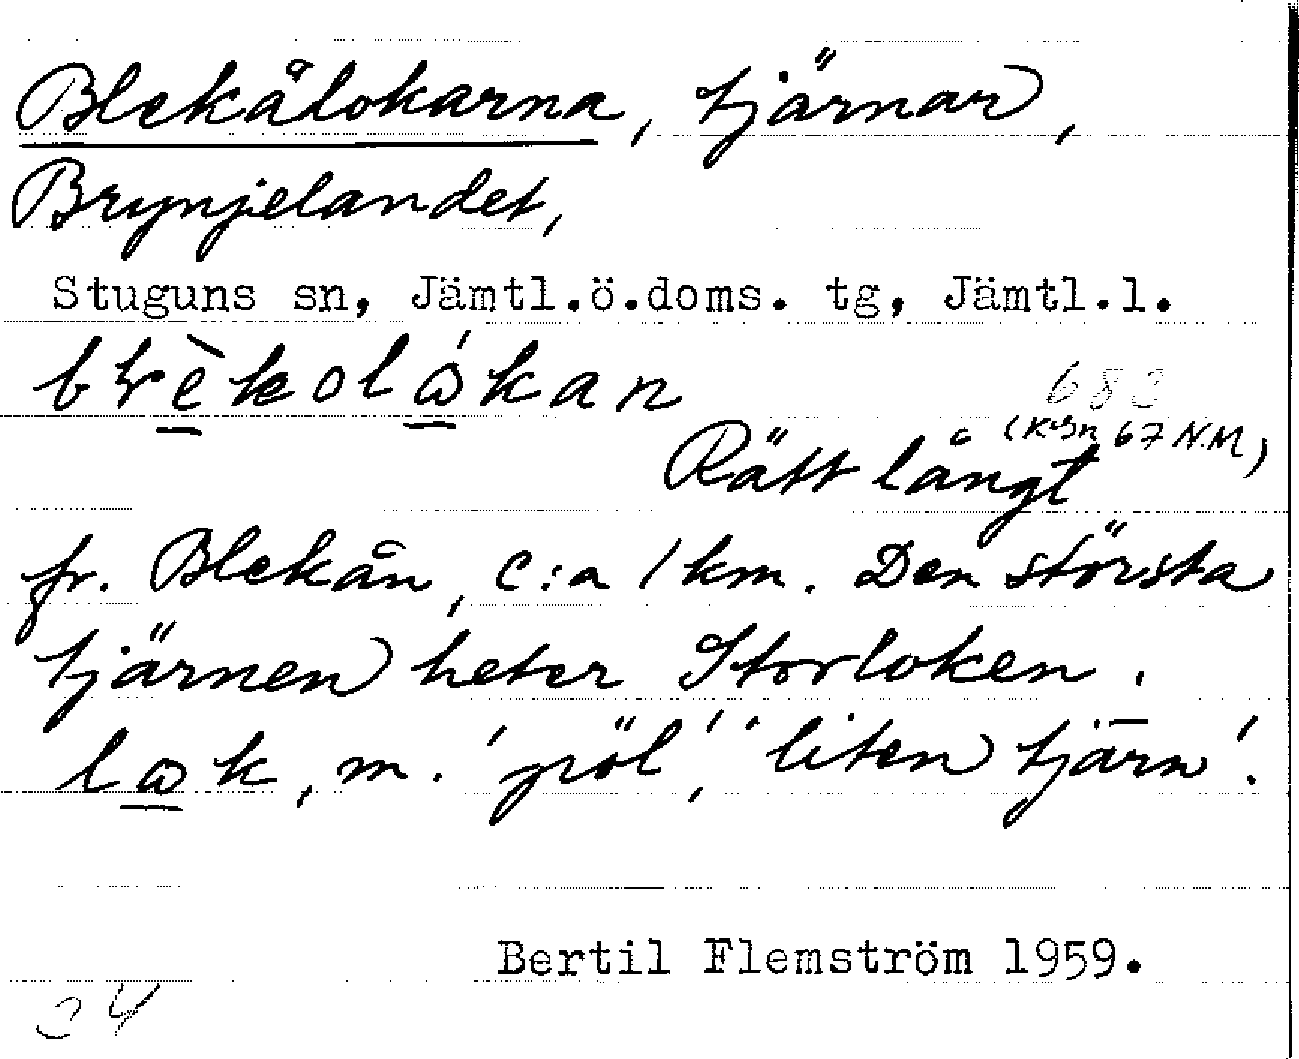 Blekålokarna, tjärnar,
Brynjelandet,
Stuguns sn, Jämtl.ö.doms. tg, Jämtl.l.
683
67 N.M)
Rätt långt
fr. Blekån, c:a 1 km. Den största
tjärnen heter Storloken.
lωk, m. 'pöl', 'liten tjärn'.
Bertil Flemström 1959.
34